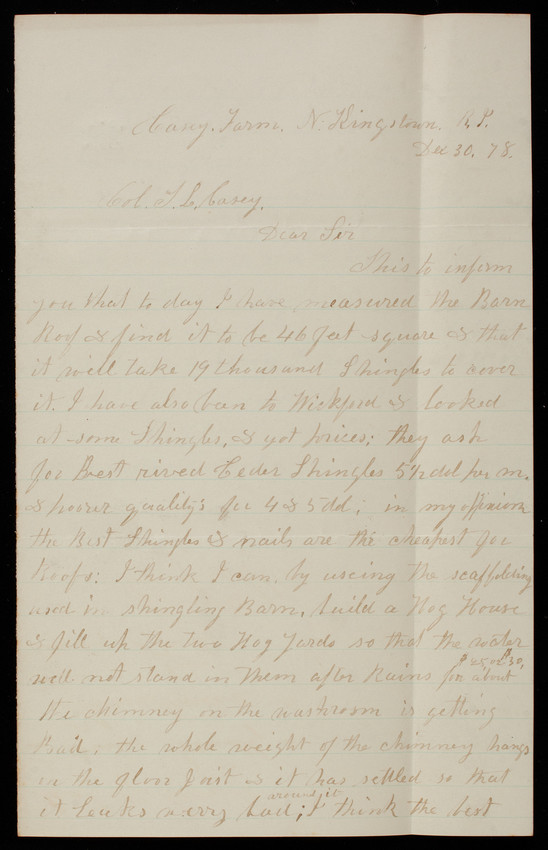 Casey. Farm. N. Kingstown. R.I.
Dec 30. 78.
Col. T. L. Casey.
Dear Sir
This to inform
you that to day I have measured the Barn
Roof & find it to be 46 feet square & that
it will take 19 thousand Shingles to cover
it. I have also been to Wickford & looked
at some Shingles, & got prices; they ask
for Best rived Ceder Shingles 5½ dol per m.
& poorer quality's for 4 & 5 dol; in my oppinion
the Best Shingles & nails are the cheapest for
Roofs: I think I can, by useing the scaffolding
used in shingling Barn, build a Hog House
& fill up the two Hog Yards so that the water
will not stand in them after Rains for about $25 or $30,
the chimney on the washroom is getting
Bad; the whole weight of the chimney hangs
on the floor Joist & it has settled so that
it leaks very bad around it; I think the best